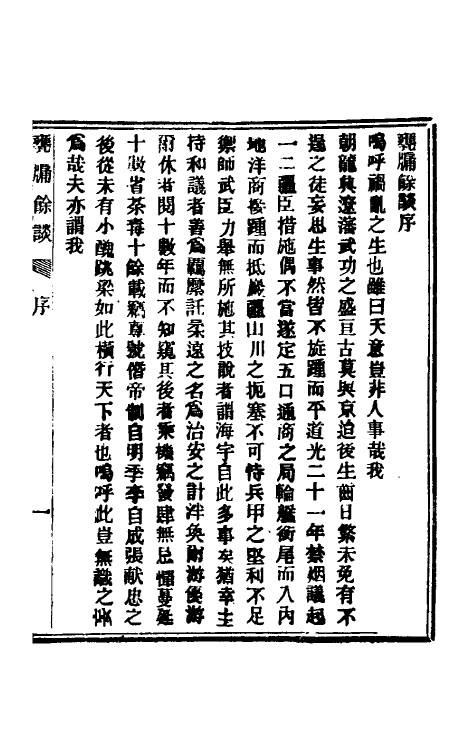 甕牖餘談序
嗚呼禍亂之生也雖曰天意豈非人事哉我
朝龍興遼藩武功之盛亘古莫與京迨後生齒日繁未免有不
逞之徒妄思生事然皆不旋踵而平道光二十一年禁烟議起
一二疆臣措施偶不當遂定五口通商之局輪艦銜尾而入內
地洋商接踵而抵嚴疆山川之扼塞不可恃兵甲之堅利不足
禦師武臣力舉無所施其技說者謂海宇自此多事矣猶幸主
持和議者善爲羈縻託柔遠之名爲治安之計泮奐爾游優游
爾休者閱十數年而不知窺其後者乘機竊發肆無忌憚蔓延
十數省荼毒十餘載竊尊號僭帝制自明季李自成張献忠之
後從未有小醜跳梁如此橫行天下者也嗚呼此豈無識之儔
爲哉夫亦謂我
甕牖餘談
序
一